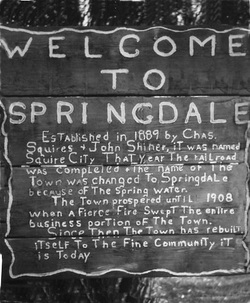 WELCOME
TO
SPRINGDALE
Established in 1889 by Chas.
Squires & John Shiner, it was named
Squire City That year The railroad
was completed & the name of The
Town was changed To Springdale
because of The Spring water.
The Town prospered until 1908
when a fierce fire Swept The entire
business portion of The Town.
Since Then The Town has rebuilt
itself To The Fine Community it
is Today